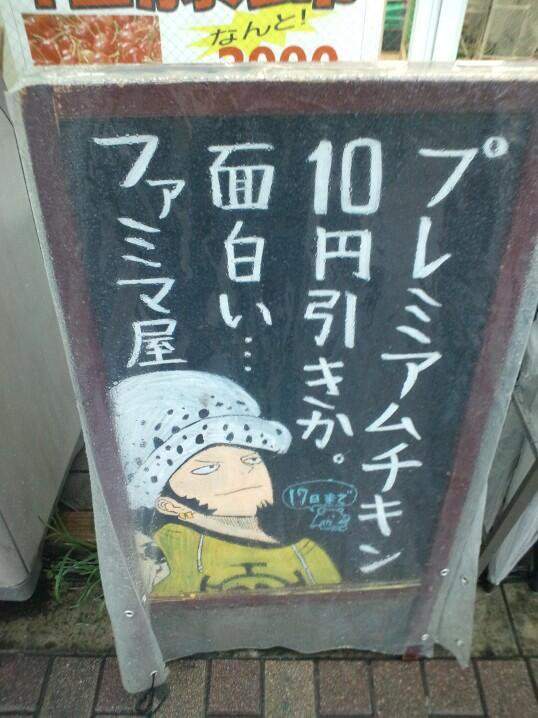 なんと!
プレミアムチキン
10円引きか。
面白い…
ファミマ屋
17日まで